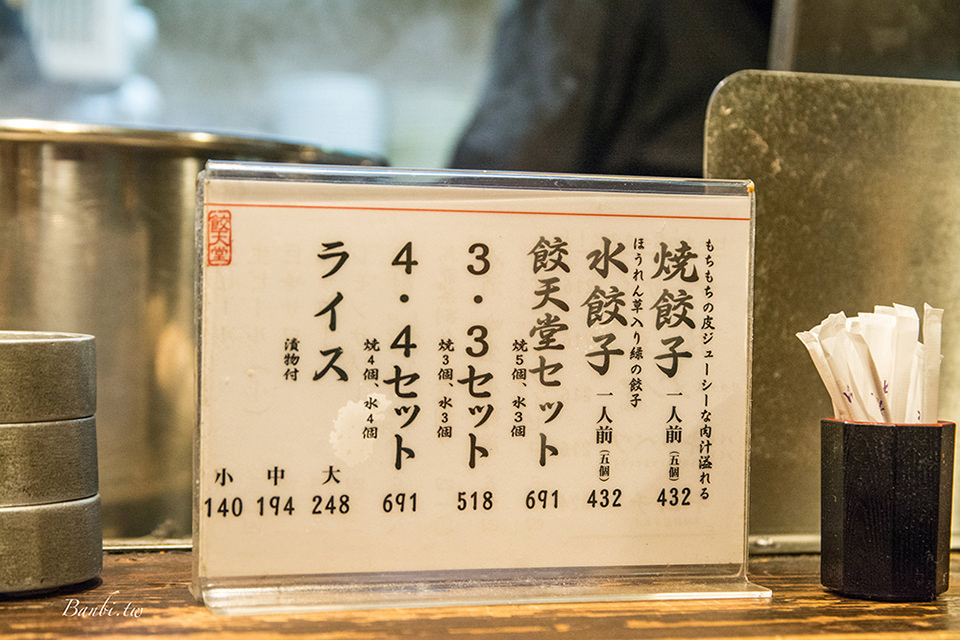 餃天堂
もちもちの皮ジューシーな肉汁溢れる
焼餃子 一人前(五個) 432
ほうれん草入り緑の餃子
水餃子 一人前(五個) 432
餃天堂セット 691
焼5個、水3個
3・3セット 518
焼3個、水3個
4・4セット 691
焼4個、水4個
ライス
漬物付
大 248
中 194
小 140
Banbi.tw